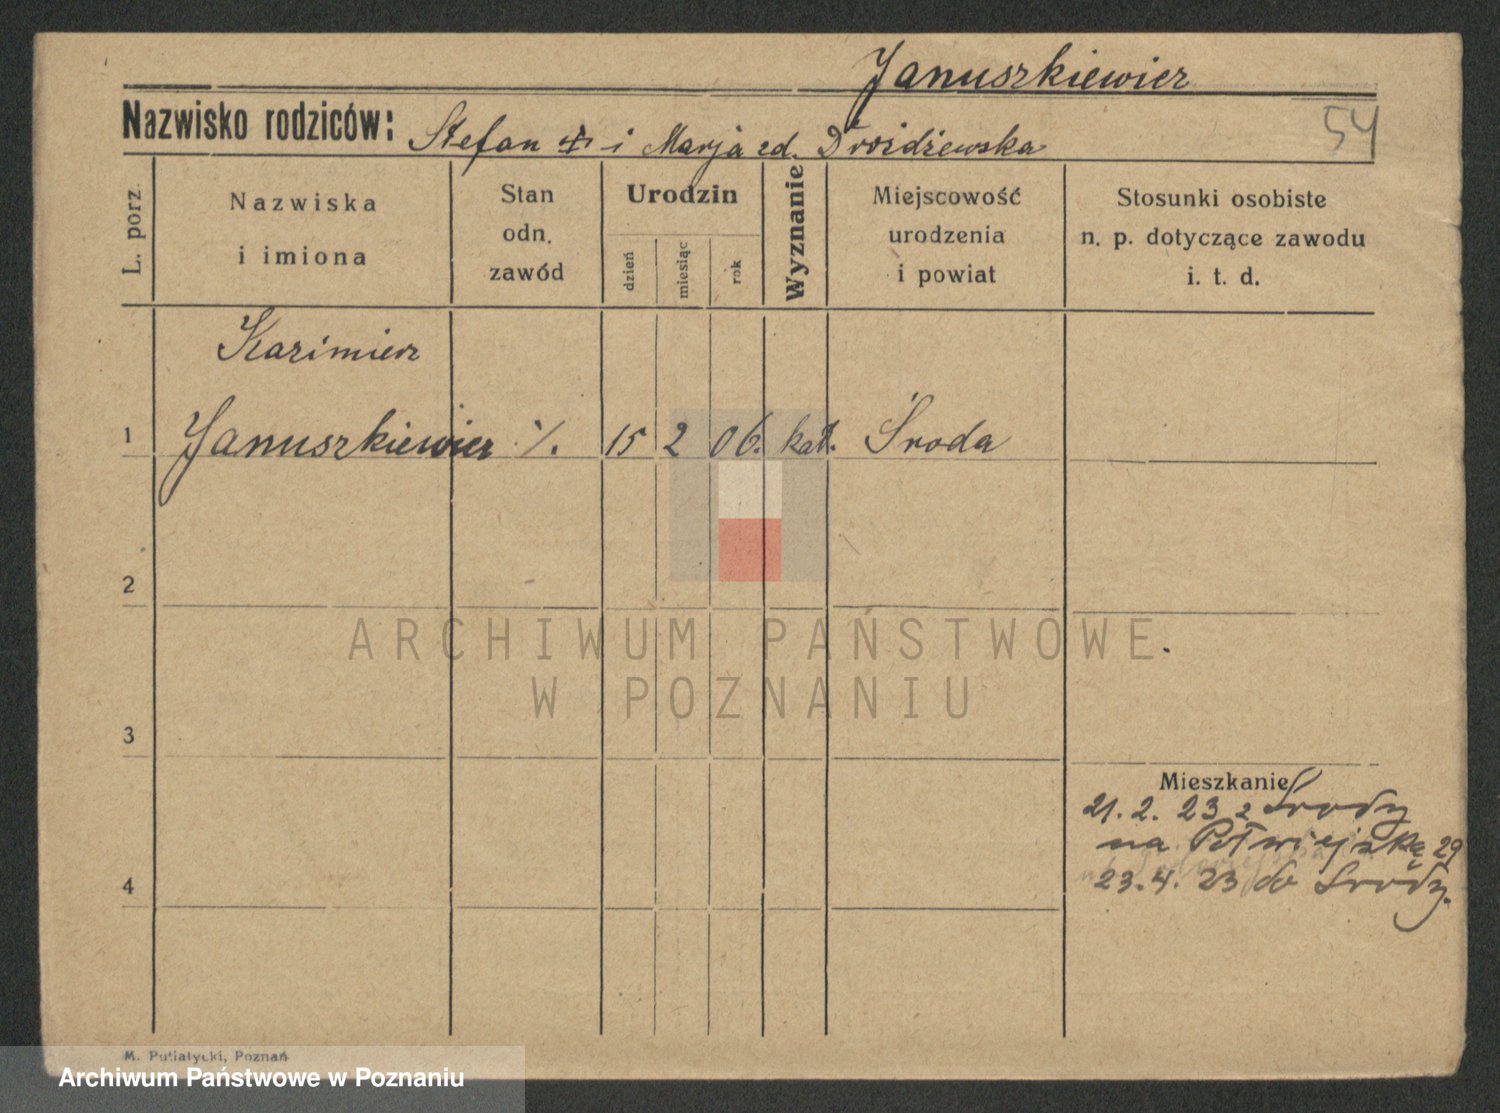 Januszkiewicz
54
Nazwisko rodziców: Stefan ✝ i Marja zd. Drożdżewska
L. porz.
Nazwiska
i imiona
Stan
odn.
zawód
Urodzin
dzień
miesiąc
rok
Wyznanie
Miejscowość
urodzenia
i powiat
Stosunki osobiste
n. p. dotyczące zawodu
i. t. d.
Kazimierz
1 Januszkiewicz ·/. 15 2 06. kat. Środa
2
ARCHIWUM PAŃSTWOWE
W POZNANIU
3
Mieszkanie
21. 2. 23 z Środy
na Półwiejską 29
4
23. 4. 23 do Środy.
M. Putiatycki, Poznań
Archiwum Państwowe w Poznaniu